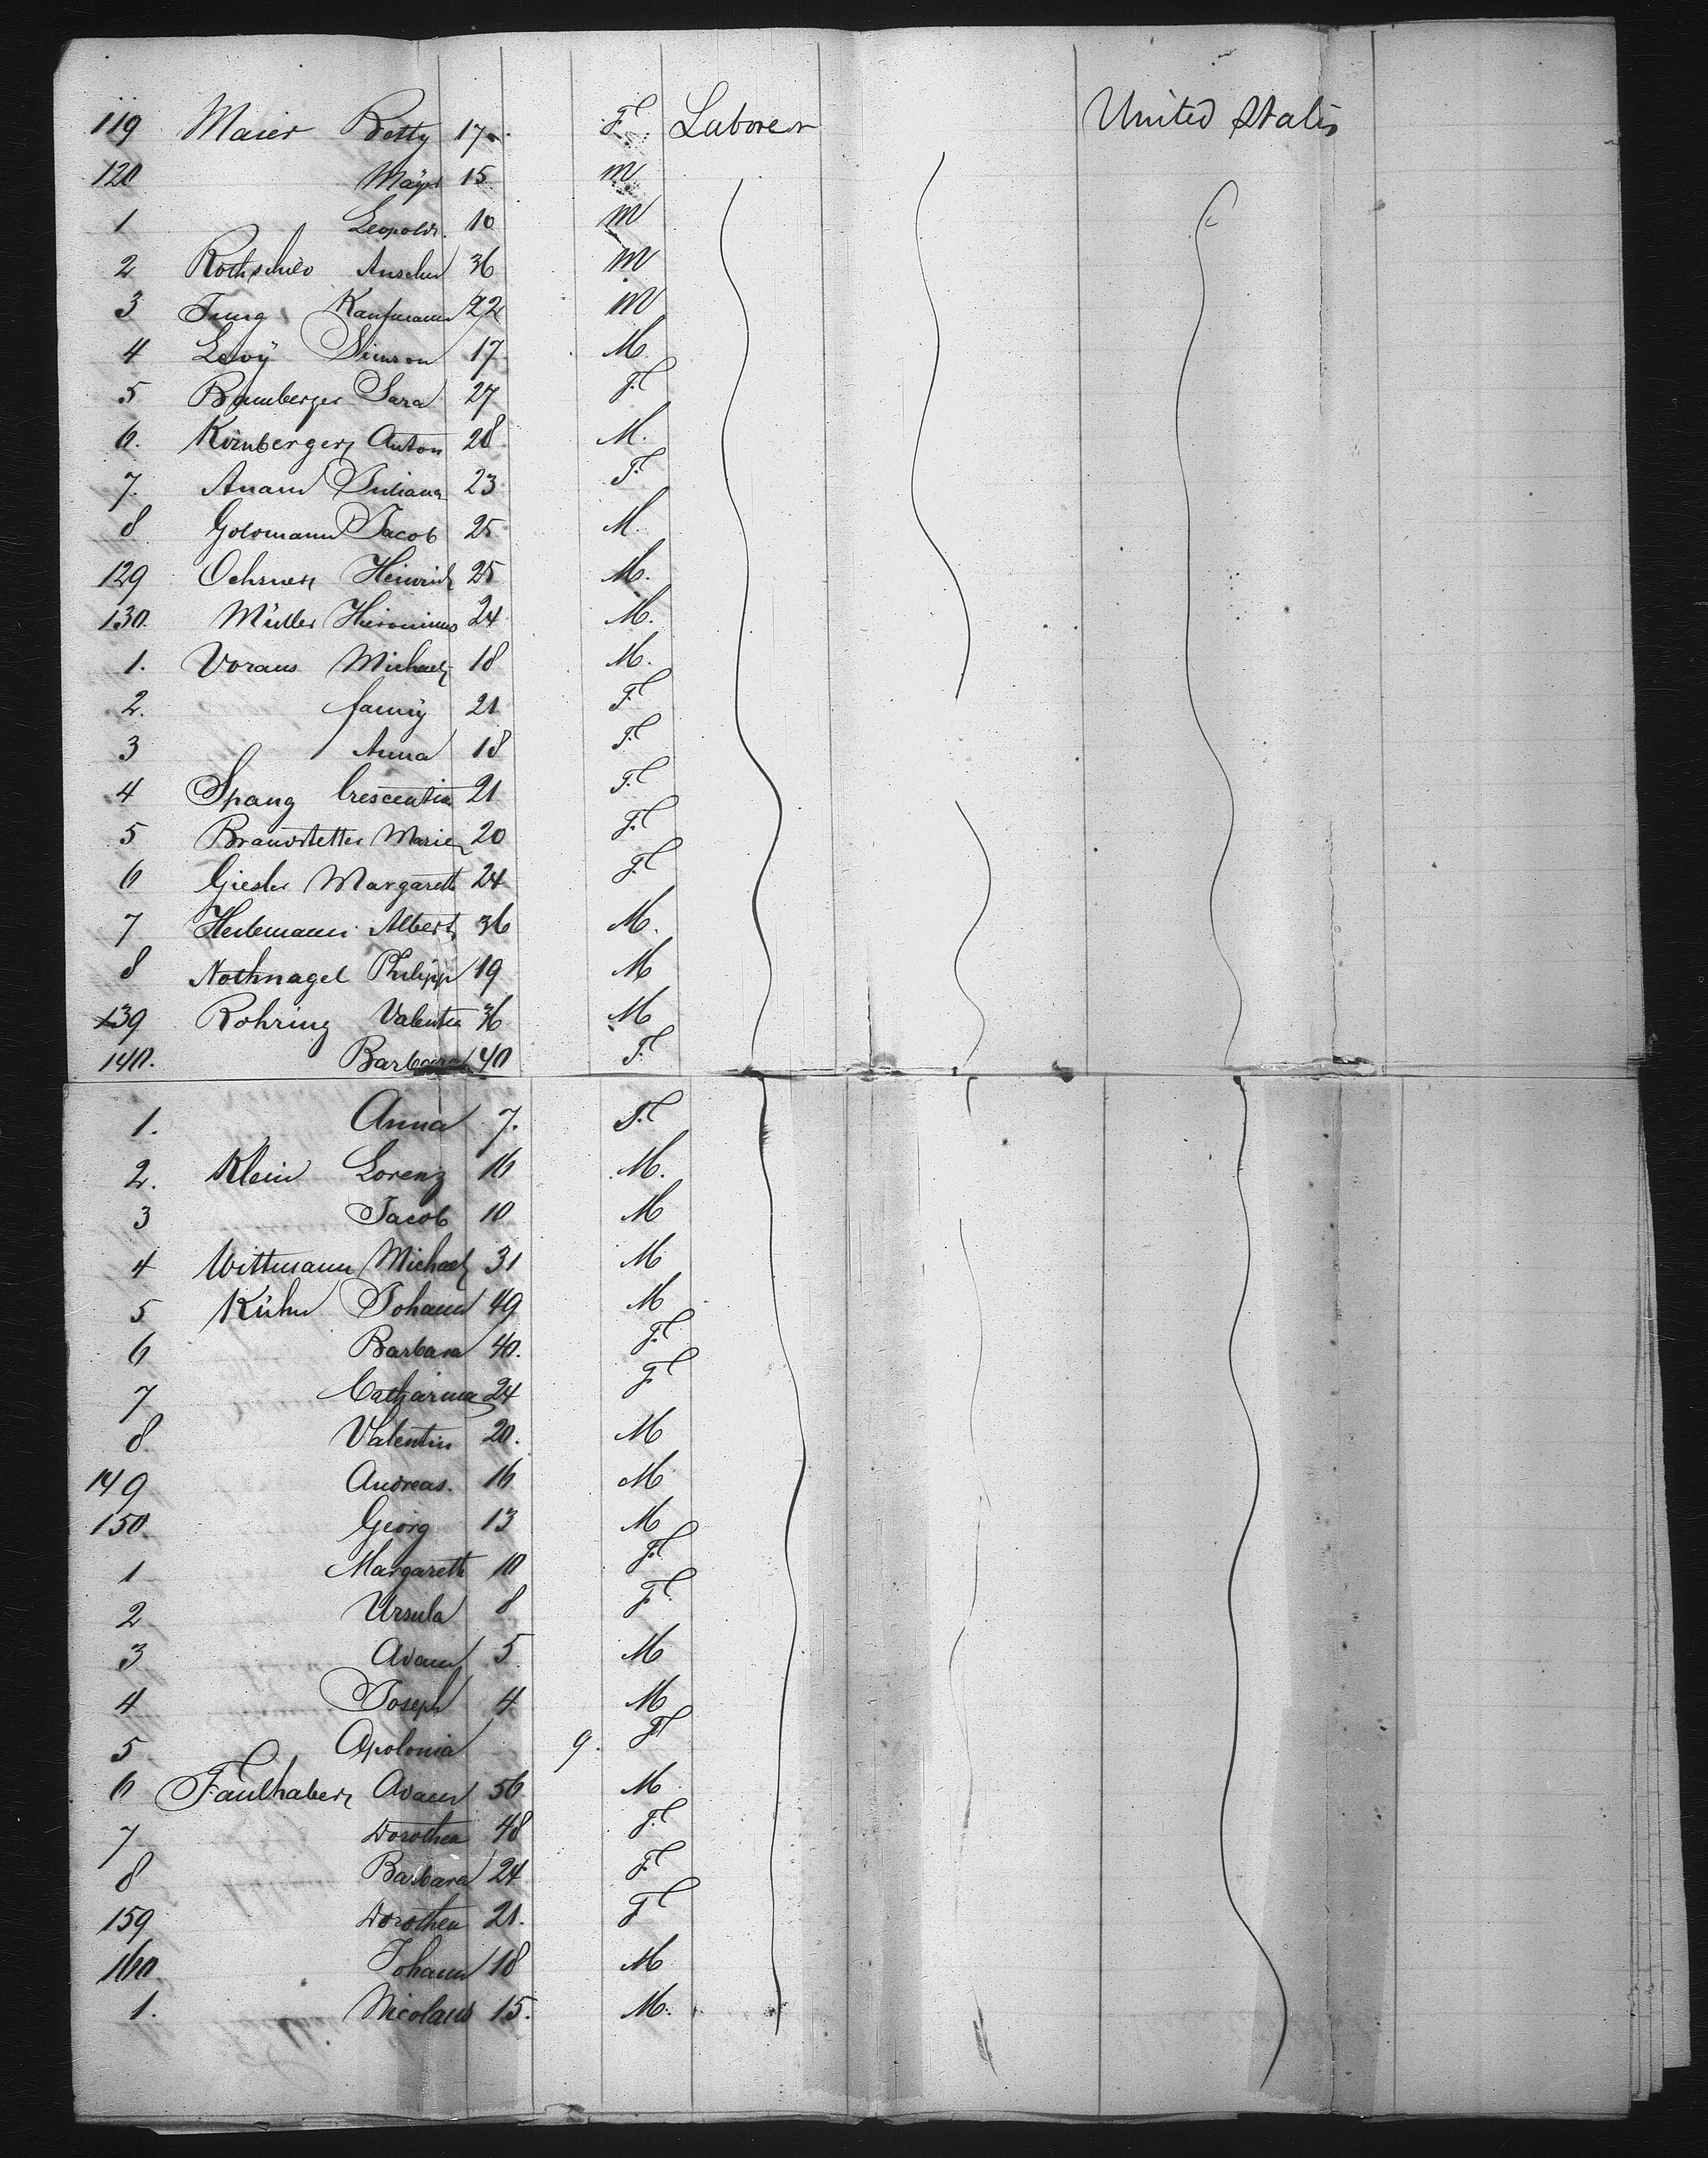 119 Maier Betty 17 F. Laborer United States
120 Mayer 15 M
1 Leopold. 10 M
2 Rothschild Anselm 36 M
3 Jung Kaufmann 22 M
4 Levÿ Simson 17 M
5 Bamberger Sara 27 F.
6. Kirnberger Anton 28 M.
7. Juliana 23 F.
8 Goldmann Jacob 25 M.
129 Ochsner Heinrich 25 M.
130. Müller Hieronimus 24 M.
1. Voraus Michael 18 M.
2. fannÿ 21 F.
3 Anna 18 F.
4 Spang Crescentia 21 F.
5 Brandstetter Marie 20 F.
6 Giesler Margareth 24 F.
7 Albert 36 M.
8 Nothnagel Philipp 19 M
139 Rohring Valentin 36 M
140. Barbara 40 F.
1. Anna 7. F.
2. Klein Lorenz 16 M.
3 Jacob 10 M
4 Wittmann Michael 31 M
5 Kühn Johann 49 M
6 Barbara 40. F.
7 Catharina 24 F
8. Valentin 20. M
149 Andreas. 16 M
150. Georg 13 M
1 Margareth 10 F.
2 Ursula 8 F.
3 Adam 5 M
4 Joseph 4 M
5 Apolonia 9. F
6 Faulhaber Adam 56 M
7 Dorothea 48 F.
8 Barbara 24 F
159 Dorothea 21. F
160. Johann 18 M
1. Nicolaus 15. M.